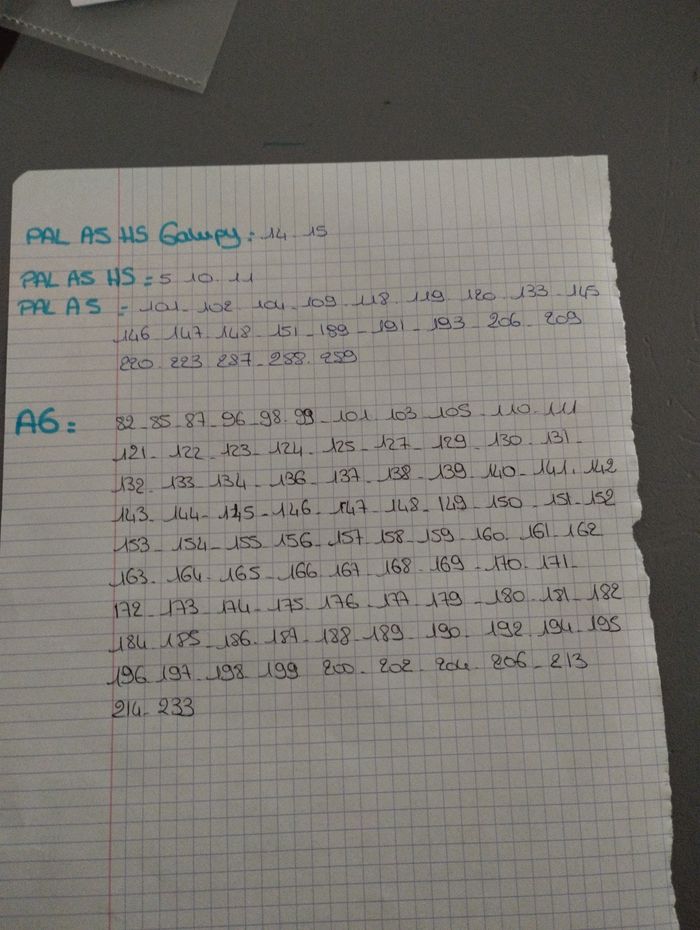 PAL AS HS Galupy : 14. 15
PAL AS HS = 5 10. 11
PAL AS = 101 - 102. 104. 109. 118. 119. 120. 133. 145
146. 147. 148. 151 - 189 - 191 - 193. 206. 209
220. 223 287 - 288. 289
A6 : 82 - 85. 87. 96. 98. 99 - 101. 103. 105. 110. 111
121. 122. 123. 124. 125. 127. 129. 130. 131 -
132. 133. 134. 136. 137. 138. 139. 140. 141. 142
143. 144 - 145 - 146. 147. 148. 149. 150. 151. 152
153 - 154 - 155. 156 - 157. 158. 159. 160. 161. 162
163. 164. 165 - 166. 167. 168. 169 - 170. 171 -
172 - 173. 174 - 175. 176. 177. 179 - 180. 181 - 182
184. 185 - 186. 187. 188. 189. 190. 192. 194. 195
196. 197. 198. 199 200 - 202. 204. 206 - 213
214 - 233